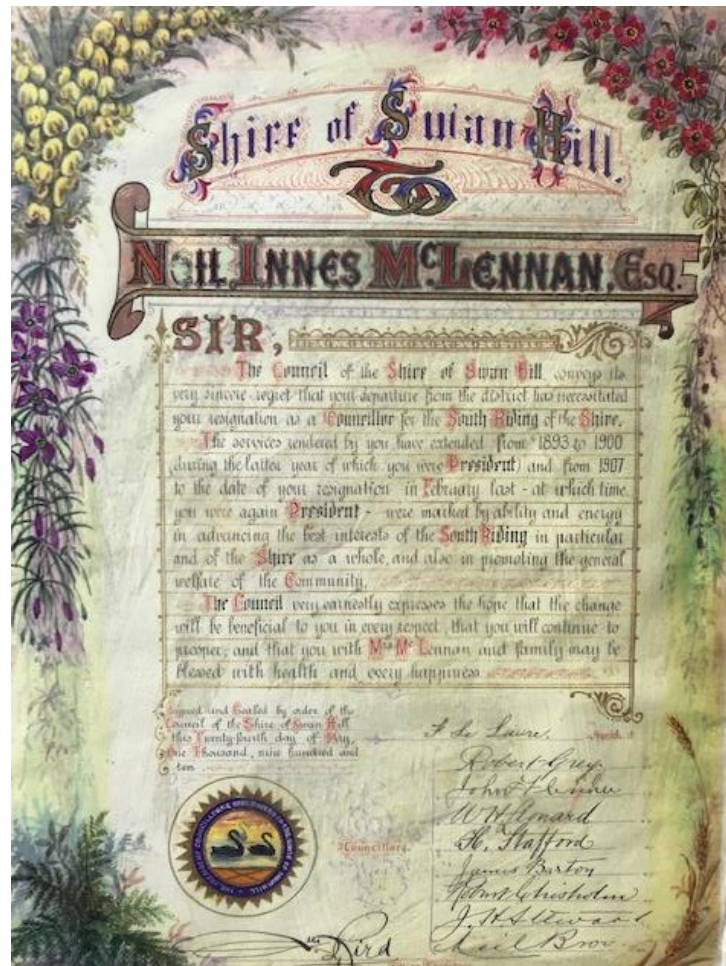 Shire of Swan Hill.
To
NEIL INNES McLENNAN, ESQ.
SIR,
The Council of the Shire of Swan Hill conveys its
very sincere regret that your departure from the district has necessitated
your resignation as a Councillor for the South Riding of the Shire.
The services rendered by you have extended from 1893 to 1900
(during the latter year of which you were President) and from 1907
to the date of your resignation in February last - at which time
you were again President - were marked by ability and energy
in advancing the best interests of the South Riding in particular
and of the Shire as a whole, and also in promoting the general
welfare of the Community.
The Council very earnestly expresses the hope that the change
will be beneficial to you in every respect, that you will continue to
prosper, and that you with Mrs McLennan and family may be
blessed with health and every happiness
Signed and Sealed by order of the
Council of the Shire of Swan Hill
this Twenty-fourth day of May,
One Thousand, nine hundred and
ten
President
Robert Grey
H. Stafford
James Barton
Robert Chisholm
Councillors.